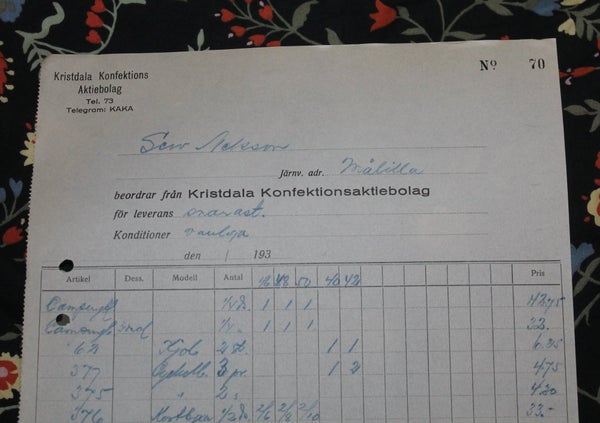 Kristdala Konfektions
Aktiebolag
Tel. 73
Telegram: KAKA
Nº 70
Järnv. adr. Målilla
beordrar från Kristdala Konfektionsaktiebolag
för leverans snarast.
Konditioner vanliga
den / 193
Artikel Dess. Modell Antal 46 48 50 40 42 Pris
1/2 1 1 1 42.75
1 1 1 32.
62 Kjol 2 st. 1 1 6.35
377 3 1 2 4.75
375 " 2 4.20
376 1/2 2/6 2/8 2/10 33.-